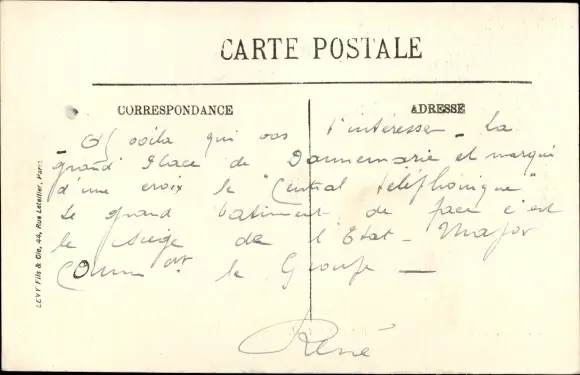 CARTE POSTALE
CORRESPONDANCE
ADRESSE
voila qui vas t'intéresser _ La
grand Place de Dannemarie et marqui
d'une croix le "Central téléphonique"
Le grand batiment de face c'est
le siège de l'Etat-Major
Comm dt le Groupe _
René
LEVY Fils & Cie, 44, Rue Letellier, Paris